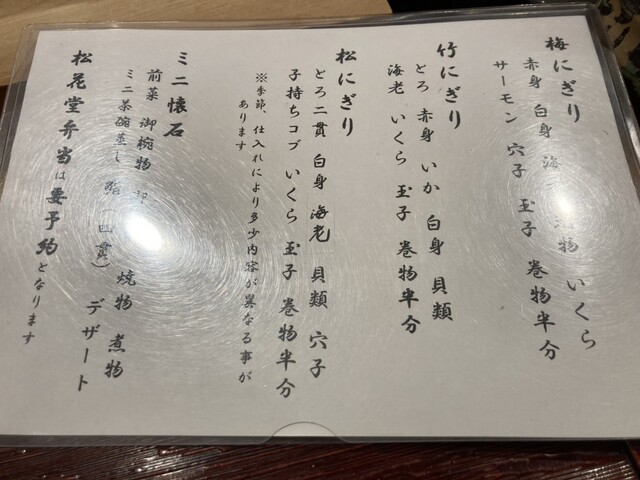 梅にぎり
赤身 白身 海 物 いくら
サーモン 穴子 玉子 巻物半分
竹にぎり
とろ 赤身 いか 白身 貝類
海老 いくら 玉子 巻物半分
松にぎり
とろ二貫 白身 海老 貝類 穴子
子持ちコブ いくら 玉子 巻物半分
※季節、仕入れにより多少内容が異なる事が
あります
ミニ懐石
前菜 御椀物 焼物 煮物
ミニ茶碗蒸し 鮨(四貫) デザート
松花堂弁当は要予約となります